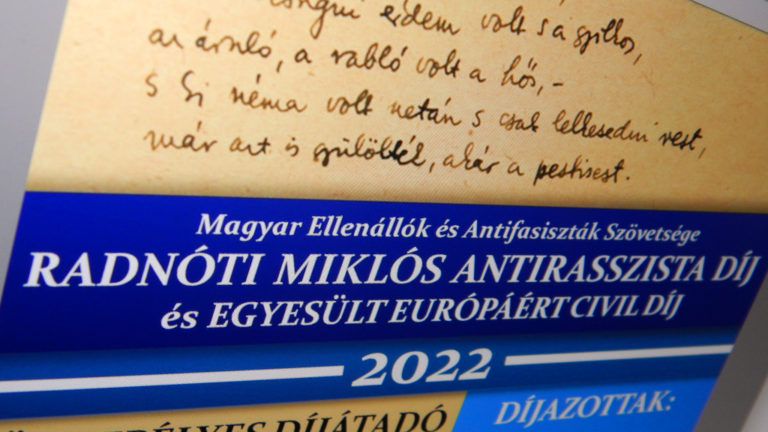 érdem volt s a gyilkos,
az áruló, a rabló volt a hős, –
s ki néma volt netán s csak lelkesedni rest,
már azt is gyűlölték, akár a pestisest.
Magyar Ellenállók és Antifasiszták Szövetsége
RADNÓTI MIKLÓS ANTIRASSZISTA DÍJ
és EGYESÜLT EURÓPÁÉRT CIVIL DÍJ
2022
DÍJÁTADÓ
DÍJAZOTTAK: